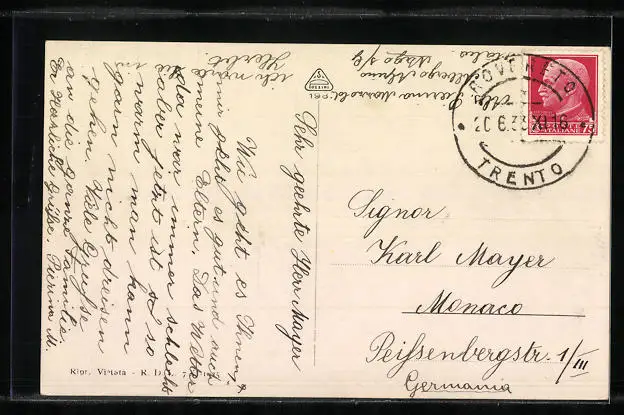 Sehr geehrte Herr Mayer
Wie geht es Ihnen,
mir geht es gut und auch
meine Eltern. Das Wetter
da war immer schlecht
aber jetzt ist es so
warm man kann
garnicht dreisen
gehen. Viele Grüsse
an die ganze Familie.
Herrliche Grüsse. Pierina M.
Albergo Alpino
Nago
ROVERETO
20.6.33.XI.18
TRENTO
ITALIANE 75
1961
Signor
Karl Mayer
Monaco
Peißenbergstr. 1/III
Germania
Ripr. Vietata - R. D.